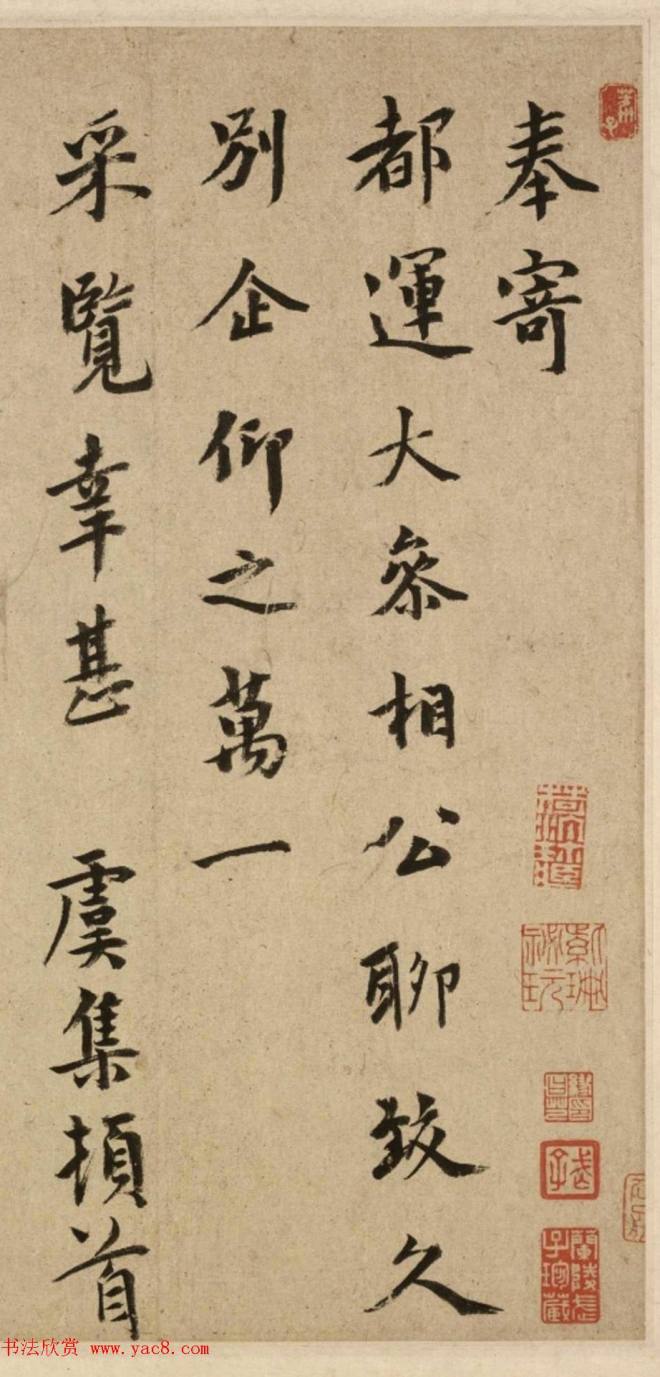 奉寄
都運大參相公聊致久
別企仰之萬一
采覽幸甚 虞集頓首
书法欣赏 www.yac8.com